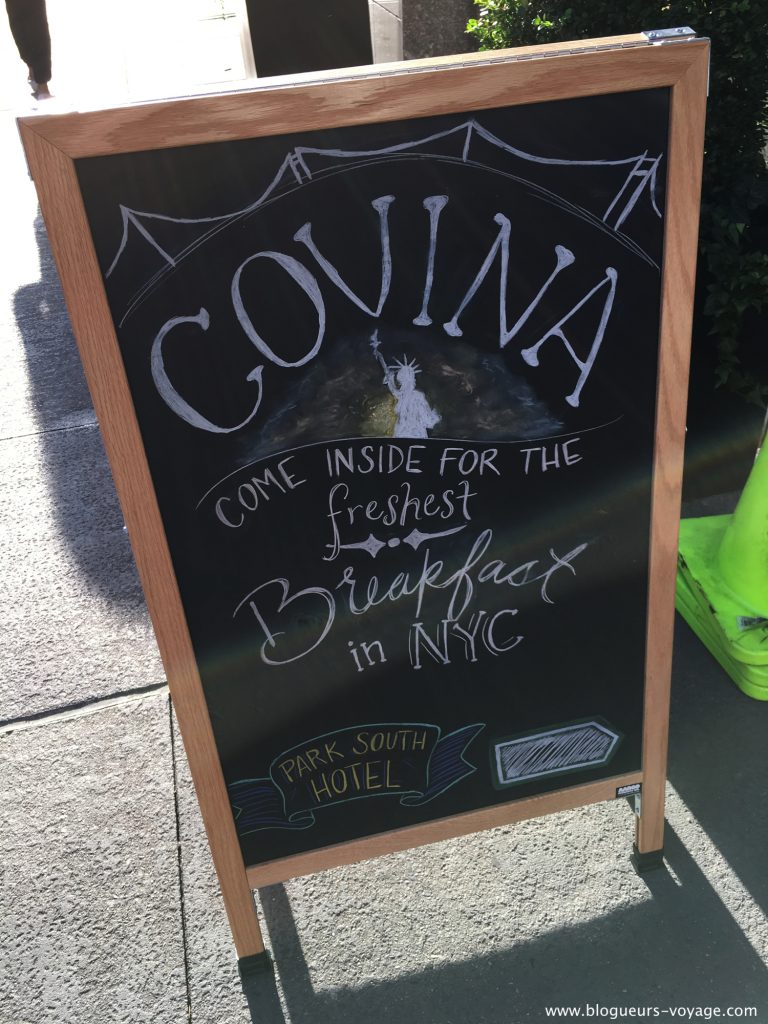 COVINA
COME INSIDE FOR THE
freshest
Breakfast
in NYC
PARK SOUTH
HOTEL
www.blogueurs-voyage.com